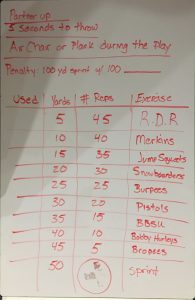 Partner up
5 seconds to throw
Air Chair or Plank During the Play
Penalty: 100 yd sprint w/ 100
Used Yards # Reps Exercise
5 45 R.D.R
10 40 Merkins
15 35 Jump Squats
20 30 Snowboarders
25 25 Burpees
30 20 Pistols
35 15 BBSU
40 10 Bobby Hurleys
45 5 Bropees
50 sprint